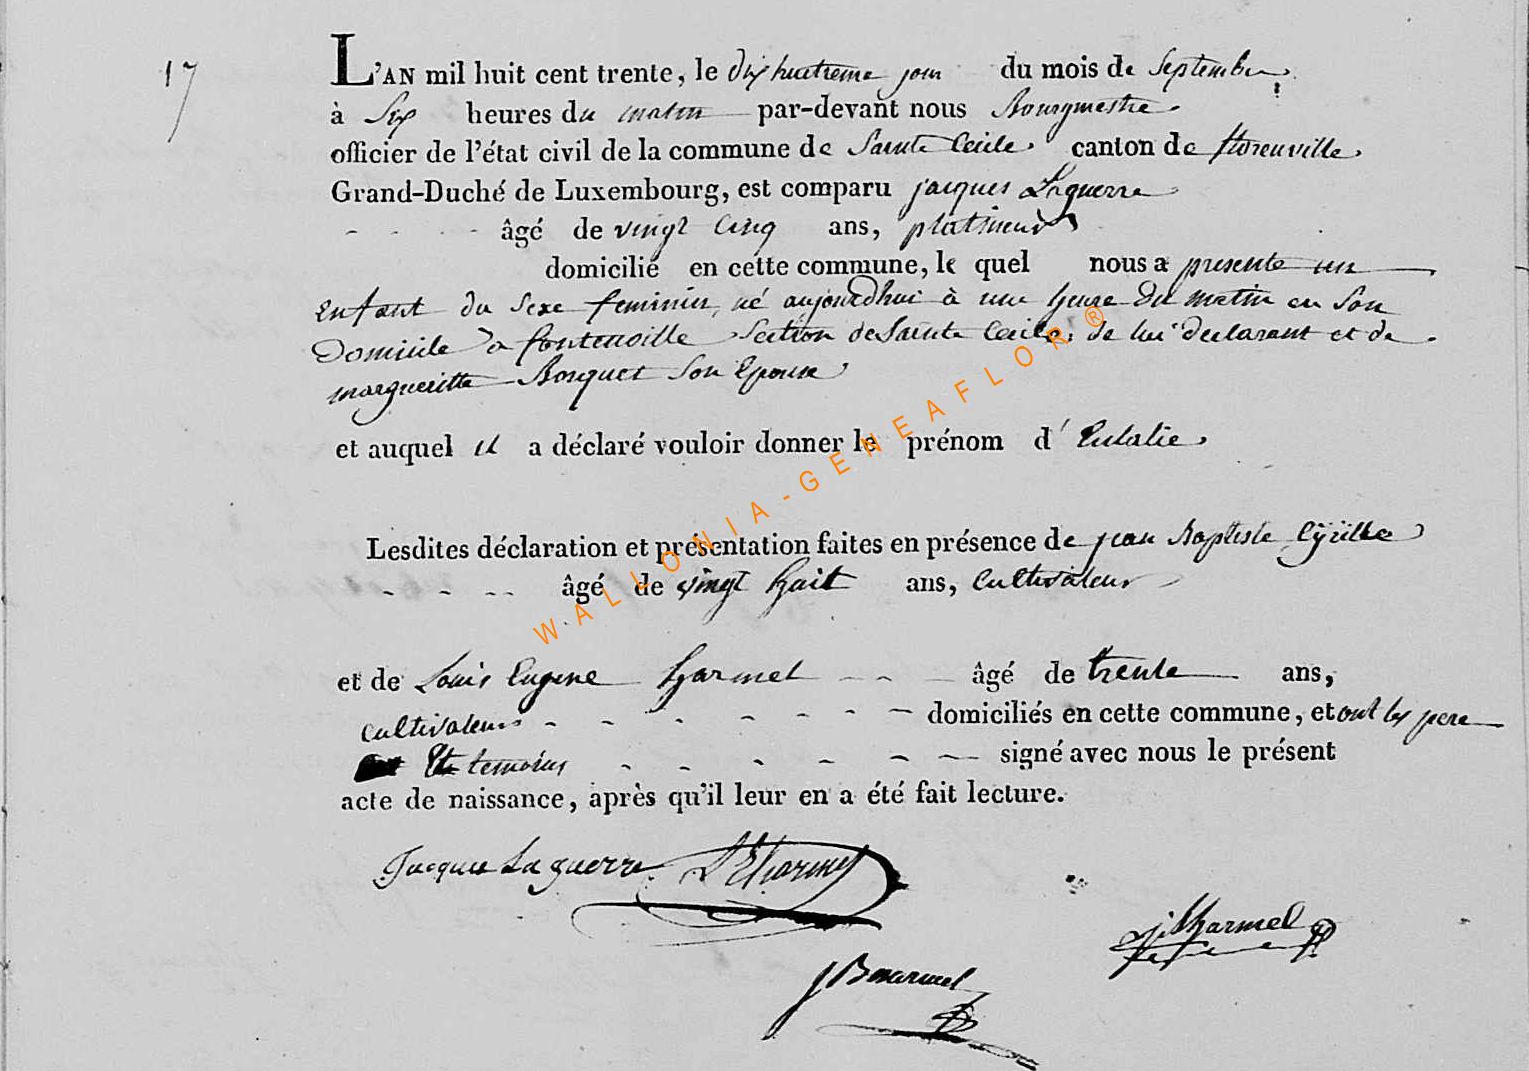 17
L'AN mil huit cent trente, le dix huitieme jour du mois de Septembre
à Six heures du matin par-devant nous Bourgmestre
officier de l'état civil de la commune de Sainte Cecile canton de florenville
Grand-Duché de Luxembourg, est comparu jacques Laguerre
âgé de vingt cinq ans, platineur
domicilié en cette commune, le quel nous a presente un
enfant du sexe feminin, né aujourdhui à une heure du matin en son
Domicile a fontenoille Section de Sainte Cecile, de lui declarant et de
margueritte Bosquet Son Epouse
et auquel il a déclaré vouloir donner le prénom d' Eulalie
Lesdites déclaration et présentation faites en présence de jean Baptiste
âgé de vingt huit ans, cultivateur
et de Louis Eugene harmel âgé de trente ans,
cultivateurs domiciliés en cette commune, et ont les pere
Et temoins signé avec nous le présent
acte de naissance, après qu'il leur en a été fait lecture.
Jacques Laguerre LEharmel
harmel
WALLONIA-GENEAFLOR ®